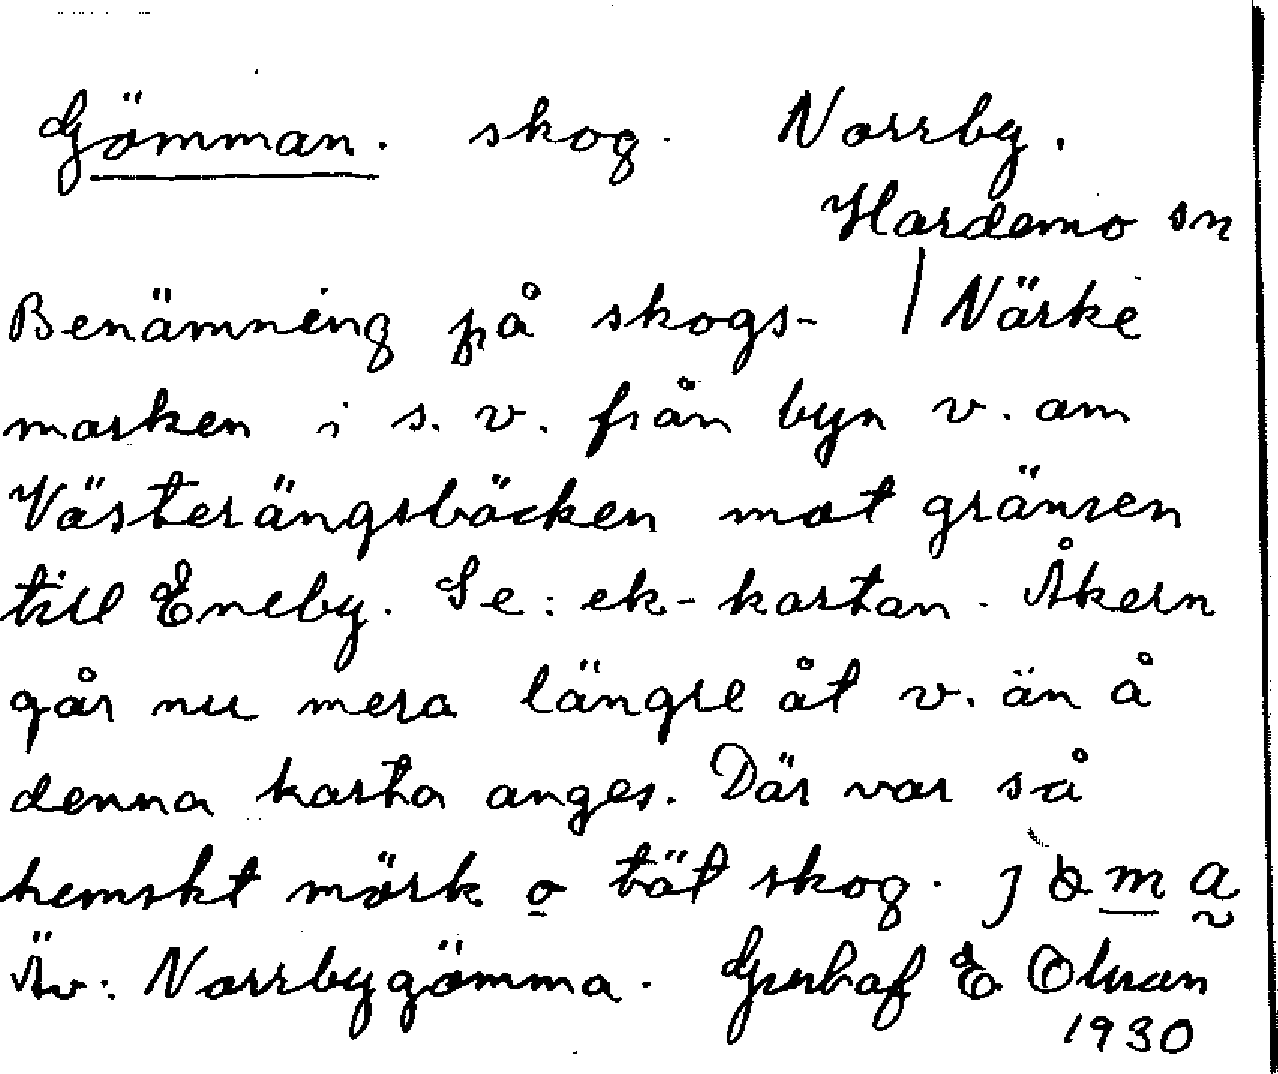 Gömman. skog. Norrby.
Hardemo sn
Benämning på skogs- | Närke
marken i s. v. från byn v. om
Västerängsbäcken mot gränsen
till Eneby. Se: ek-kartan. Åkern
går nu mera längre åt v. än å
denna karta anges. Där var så
hemskt mörk o tät skog.
Äv: Norrbygömma. Gustaf E Olsson
1930